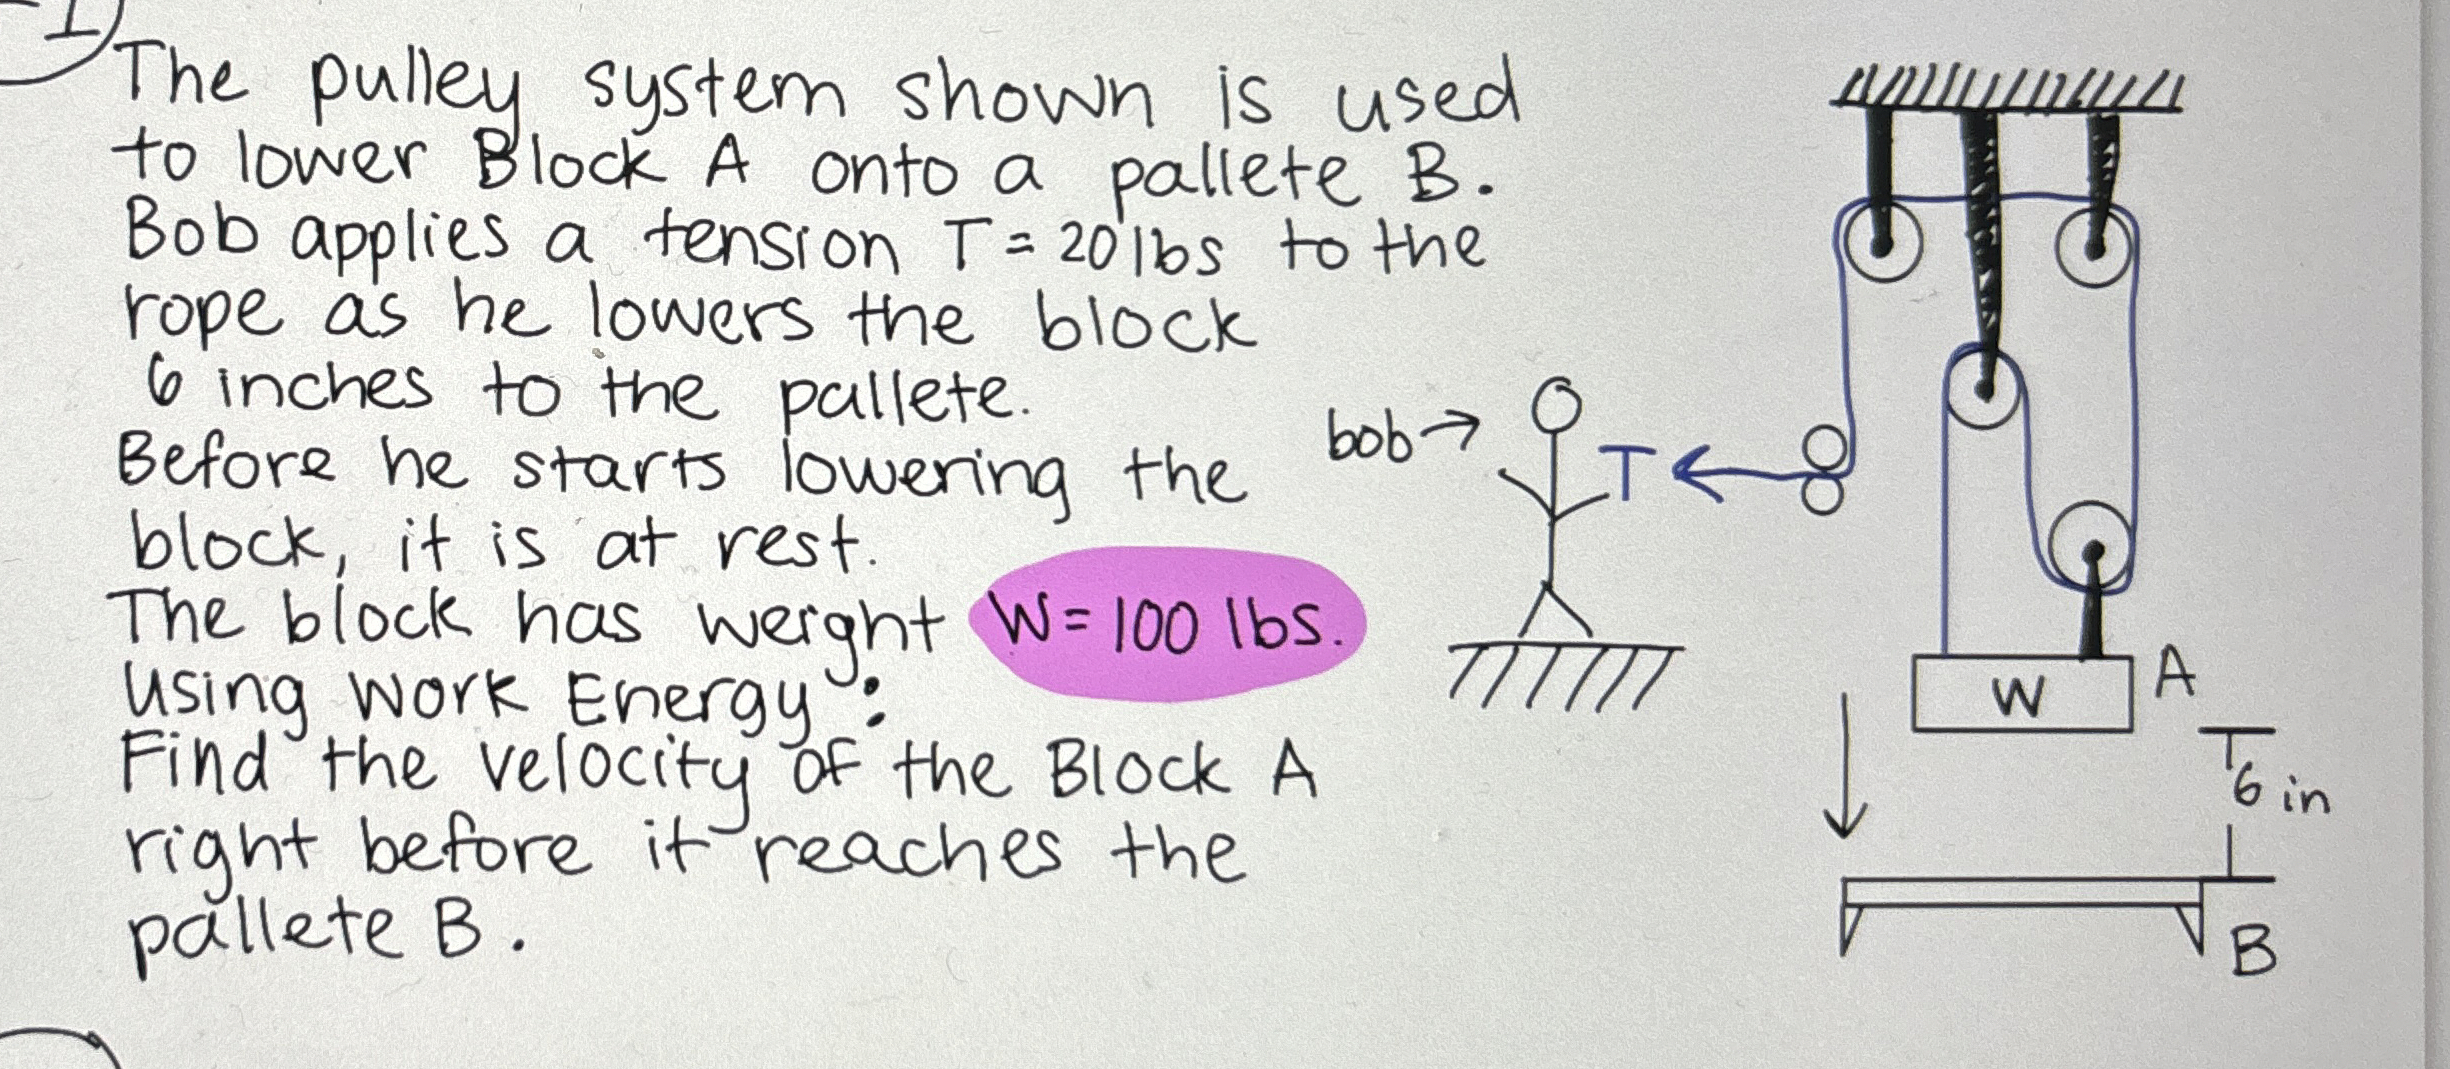 -1
The pulley system shown is used
to lower Block A onto a pallete B.
Bob applies a tension T = 20 lbs to the
rope as he lowers the block
6 inches to the pallete.
Before he starts lowering the
block, it is at rest.
The block has weight W = 100 lbs.
Using Work Energy:
Find the velocity of the Block A
right before it reaches the
pallete B.
bob →
T
W
A
6 in
B